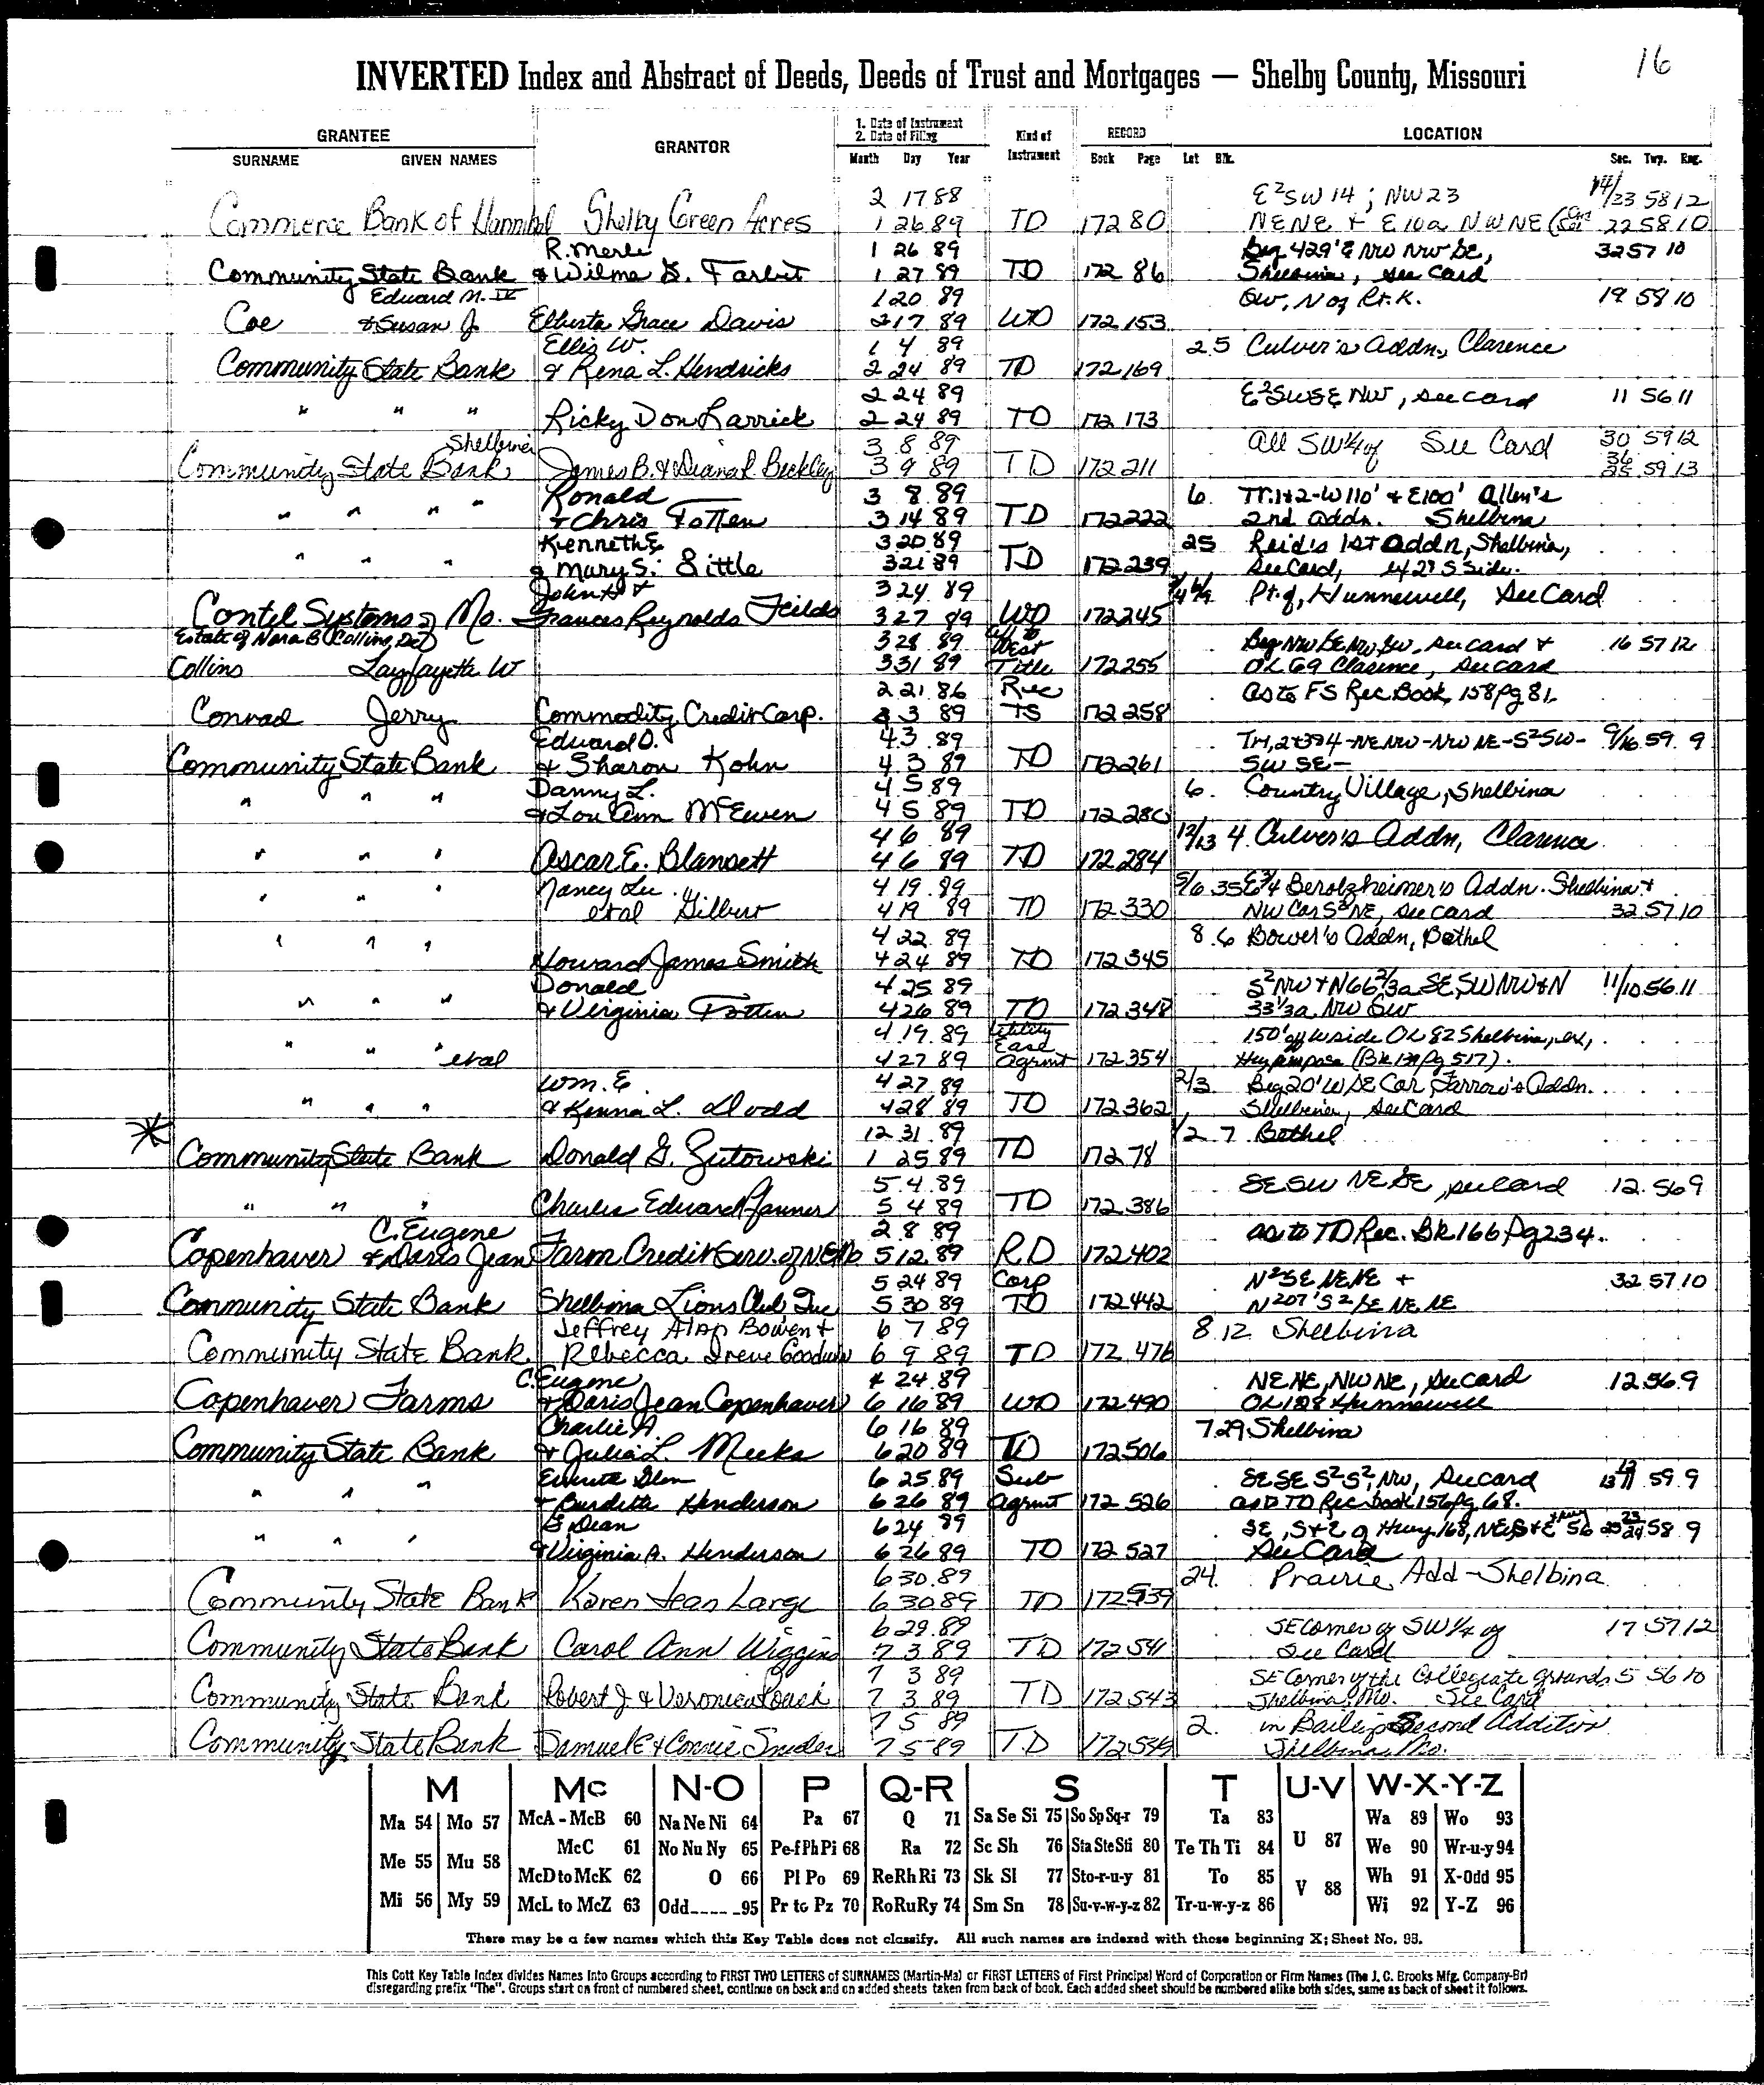 16
INVERTED Index and Abstract of Deeds, Deeds of Trust and Mortgages — Shelby County, Missouri
GRANTEE GRANTOR 1. Date of Instrument 2. Date of Filing Kind of Instrument RECORD LOCATION
SURNAME GIVEN NAMES Month Day Year Book Page Lot Blk. Sec. Twp. Rng.
2 17 88 E²SW 14; NW 23 14/23 58 12
Commerce Bank of Hannibal Shelby Green Acres 1 26 89 TD 172 80 NENE + E10a NWNE 22 58 10
R. Merle 1 26 89 Beg 429' E NW NW SE, 32 57 10
Community State Bank & Wilma G. Tarbet 1 27 89 TD 172 86 Shelbina, See Card
Edward N. IV 1 20 89 SW, N of Rt. K. 19 58 10
Coe & Susan J. Elberta Grace Davis 2 17 89 WD 172 153
Ellis W. 1 4 89 2 5 Culver's Addn, Clarence
Community State Bank & Rena L. Hendricks 2 24 89 TD 172 169
2 24 89 E²SWSE NW, See Card 11 56 11
" " " Ricky Don Larrick 2 24 89 TD 172 173
Shelbina 3 8 89 All SW¼ of See Card 30 59 12
Community State Bank James B. & Diana L Beckley 3 9 89 TD 172 211 36 25 59 13
Ronald 3 8 89 6 Tr. 1+2-W110' + E100' Allen's
" " " " & Chris Totten 3 14 89 TD 172 222 2nd Addn. Shelbina
Kenneth E 3 20 89 25 Reid's 1st Addn, Shelbina,
" " " & Mary S. Little 3 21 89 TD 172 239 See Card, 42' S Side.
John H & 3 24 89 Pt. of, Hunnewell, See Card
Contel Systems of Mo. Frances Reynolds Feilds 3 27 89 WD 172 245
Estate of Nora B (Collins, De) 3 28 89 West Beg NW SE NW SW. See Card + 16 57 12
Collins Layfayette W 3 31 89 Title 172 255 OL 69 Clarence, See Card
2 21 86 Rec as to FS Rec. Book, 158 Pg 81.
Conrad Jerry Commodity Credit Corp. 3 89 TS 172 258
Edward D. 4 3 89 -NE NW-NW NE-S²SW- 9/16 59 9
Community State Bank & Sharon Kohn 4 3 89 TD 172 261 SW SE-
Danny L. 4 5 89 6 Country Village, Shelbina
" " " & Lou Ann McEwen 4 5 89 TD 172 280
4 6 89 12/13 4 Culver's Addn, Clarence
" " " Oscar E. Blansett 4 6 89 TD 172 284
Nancy Lu 4 19 89 5/6 35 E¾ Berolzheimer's Addn. Shelbina +
" " " etal Gilbert 4 19 89 TD 172 330 NW Cor S²NE, See Card 32 57 10
4 22 89 8 6 Bower's Addn, Bethel
" " " Howard James Smith 4 24 89 TD 172 345
Donald 4 25 89 S²NW + N66⅔a SE, SW NW + N 11/10 56 11
" " " & Virginia Totten 4 26 89 TD 172 348 33⅓a. NW SW
4 19 89 Utility Ease 150' off W side OL 82 Shelbina, ex,
" " " etal 4 27 89 Agrmt 172 354 Hwy purpose (Bk 131 Pg 517).
Wm. E. 4 27 89 2/3 Beg 20' W SE Cor, Farrow's Addn.
" " " & Kenna L. Dodd 4 28 89 TD 172 362 Shelbina, See Card
* 12 31 89 1/2 7 Bethel
Community State Bank Donald G. Gutowski 1 25 89 TD 172 78
5 4 89 SE SW NE SE, See Card 12 56 9
" " " Charles Edward Janner 5 4 89 TD 172 386
C. Eugene 2 8 89 as to TD Rec. Bk 166 Pg 234.
Copenhaver & Doris Jean Farm Credit Serv. of NE Mo 5 12 89 RD 172 402
5 24 89 Corp N²SE NENE + 32 57 10
Community State Bank Shelbina Lions Club Inc 5 30 89 TD 172 442 N 207' S²SE NE NE
Jeffrey Alan Bowen & 6 7 89 8 12 Shelbina
Community State Bank Rebecca Irene Goodwin 6 9 89 TD 172 476
C. Eugene 4 24 89 NE NE, NW NE, See Card 12 56 9
Copenhaver Farms & Doris Jean Copenhaver 6 16 89 WD 172 490 OL 128 Hunnewell
Charlie A. 6 16 89 7 29 Shelbina
Community State Bank & Julia L. Meeks 6 20 89 TD 172 506
Everett Glen 6 25 89 Sub SE SE S²S², NW, See Card 59 9
" " " & Burdette Henderson 6 26 89 Agrmt 172 526 as to TD Rec. Book 156 Pg 68.
G Dean 6 24 89 SE, S+E of Hwy 168, NE, S+E Hwy 56 58 9
" " " & Virginia A. Henderson 6 26 89 TD 172 527 See Card
6 30 89 24 Prairie Add-Shelbina
Community State Bank Karen Jean Large 6 30 89 TD 172 539
6 29 89 SE Corner of SW¼ of 17 57 12
Community State Bank Carol Ann Wiggins 7 3 89 TD 172 541 See Card
7 3 89 SE Corner of the Collegiate grounds 5 56 10
Community State Bank Robert J. & Veronica 7 3 89 TD 172 543 Shelbina, Mo. See Card
7 5 89 2 in Bailey Second Addition
Community State Bank Samuel E & Connie Snider 7 5 89 TD 172 Shelbina, Mo.
M Mc N-O P Q-R S T U-V W-X-Y-Z
Ma 54 Mo 57 McA - McB 60 Na Ne Ni 64 Pa 67 Q 71 Sa Se Si 75 So Sp Sq-r 79 Ta 83 U 87 Wa 89 Wo 93
McC 61 No Nu Ny 65 Pe-f Ph Pi 68 Ra 72 Sc Sh 76 Sta Ste Sti 80 Te Th Ti 84 We 90 Wr-u-y 94
Me 55 Mu 58 McD to McK 62 O 66 Pl Po 69 Re Rh Ri 73 Sk Sl 77 Sto-r-u-y 81 To 85 V 88 Wh 91 X-Odd 95
Mi 56 My 59 McL to McZ 63 Odd---- -95 Pr to Pz 70 Ro Ru Ry 74 Sm Sn 78 Su-v-w-y-z 82 Tr-u-w-y-z 86 Wi 92 Y-Z 96
There may be a few names which this Key Table does not classify. All such names are indexed with those beginning X; Sheet No. 95.
This Cott Key Table Index divides Names into Groups according to FIRST TWO LETTERS of SURNAMES (Martin-Ma) or FIRST LETTERS of First Principal Word of Corporation or Firm Names (The J. C. Brooks Mfg. Company-Br)
disregarding prefix "The". Groups start on front of numbered sheet, continue on back and on added sheets taken from back of book. Each added sheet should be numbered alike both sides, same as back of sheet it follows.